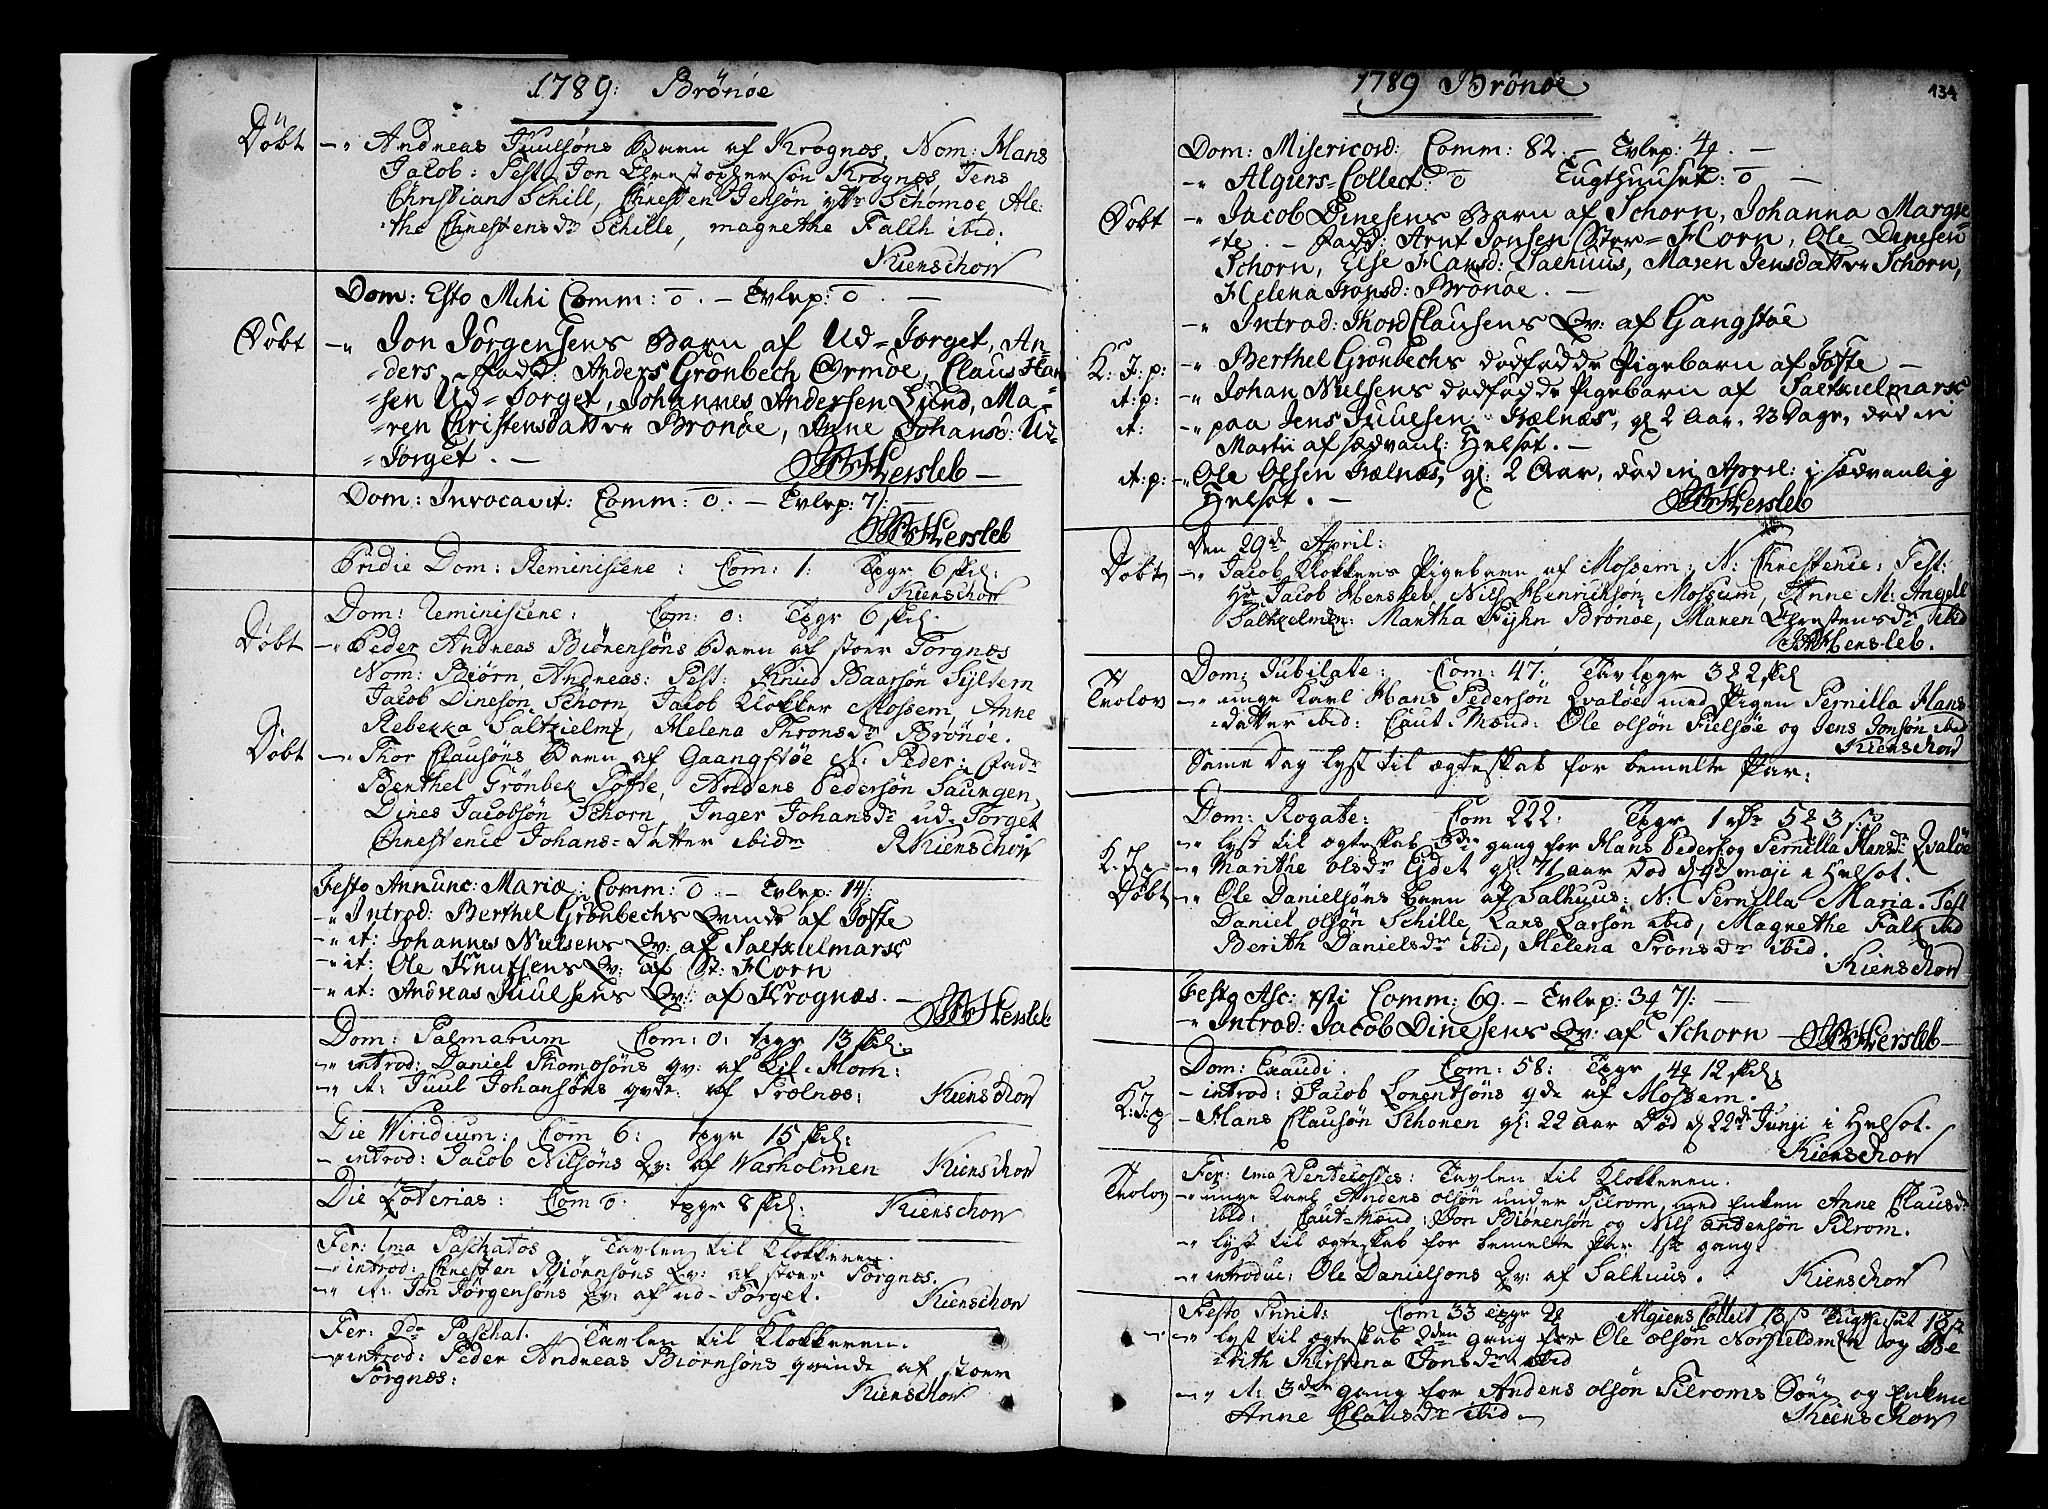 1789: Brönöe
Döbt -" Andreas Juulsöns Barn af Krognæs, Nom: Hans
Jacob: Test: Jon Christophersön Krognæs, Jens
Christian Schill, Christen Jensön yttr Schomoe, Ale-
the Christensdr Schille, magnethe Falch ibid:
Kienschow
Dom: Esto Mihi Comm: o. - Tvlep: o. -
Döbt -" Jon Jörgensens Barn af Ud=Torget, An=
=ders. - Fadd: Anders Grönbech Ormöe, Claus Han
=sen Ud=Torget, Johannes Andersen Lund, Ma-
=ren Christensdatter Brönöe, Anne Johansd: Ud-
=Torget. -
Hersleb -
Dom: Invocavit: Comm: o. - Tvlep: 7/: -
Hersleb
Pridie Dom: Reminiscene: Com: 1: Tpgr 6 skil:
Kienschow
Dom: Reminiscene: Com: 0: Tpgr 6 skil.
Döbt -" Peder Andreas Biörensöns Barn af stoer Torgnæs
Nom: Biörn, Andreas: Test: Knud Baarsön Syltern
Jacob Dinesön Schorn, Jacob Klokker Mossem, Anne
Rebekka Saltkielm, Helena Thronsdr Brönöe.
Döbt -" Thor Clausöns Barn af Gaangstöe N: Peder: Fadr
Berthel Grönbek Tofte, Anders Pedersön Saungen,
Dines Jacobsön Schorn, Inger Johansdr ud-Torget
Christence Johans=datter ibidm RKienschow
Festo Annunc: Mariæ: Comm: o. - Tvlep: 14/:
-" Introd: Berthel Grönbechs Qvinde af Tofte
-" it: Johannes Nielsens Qv: af Saltkielmarsc
-" it: Ole Knutsens Qv: af St: Horn
-" it: Andreas Juulsens Qv: af Krognæs. -
Hersleb
Dom: Palmarum Com: 0: tpgr 13 skil:
-" introd: Daniel Thomæsöns qv: af Lil-Horn:
-" it: Juul Johansöns qvde: af Trælnæs: Kienschow
Die Viridium: Com 6: tpgr 15 skil:
- introd: Jacob Nilsöns Qv: af Warholmen Kienschow
Die Zoterias: Com o: tpgr 8 skil: Kienschow
Fer: 1ma Paschatos Tavlen til Klokkeren.
-" introd: Christen Biörensöns Qv: af stoer Torgnæs.
-" it: Jon Jörgensöns Qv: af ud-Torget. Kienschow
Fer: 2da Paschat. Tavlen til Klokkeren.
-" introd: Peder Andreas Biörnsöns qvinde af stoer
Torgnæs: Kienschow
1789 Brönöe 134
Dom: Misericord: Comm: 82. - Tvlep: 4. -
-" Algiers=Collect: o Tugthuuset: o -
Döbt -" Jacob Dinesens Barn af Schorn, Johanna Margre=
=te. - Fadd: Arnt Jonsen Stor=Horn, Ole Dinesen
Schorn, Else Hansd: Salhuus, Maren Jensdatter Schorn,
Helena Tronsd: Brönöe. -
-" Introd: Thord Clausens Qv: af Gangstöe
K: J: p: -" Berthel Grönbechs dødfødde Pigebarn af Tofte -
it: p: -" Johan Nielsens dødfødde Pigebarn af Saltkielmarsc
it: -" paa Jens Juulsen Trælnæs, gl 2 Aar, 23 Dage, død in
Martii af sædvanl: Helsot. -
it: p: -" Ole Olsen Trælnæs, gl: 2 Aar, død in April: i sædvanlig
Helsot. - Hersleb
Den 29de April:
Döbt -" Jacob Klokkers Pigebarn af Mossem: N: Christence: Test:
Hr Jacob Hersleb, Nils Henriksön Mossum, Anne M: Angell
Saltkielmen: Martha Fijhn Brönöe, Maren Christensdr ibid
Hersleb.
Dom: Jubilate: Com: 47: Tavlpgr 3 2 skil
Trolov -" unge Karl Hans Pedersön Qvalöe med Pigen Pernilla Hans
datter ibid: Caut-Mænd: Ole olsön Fielsöe og Jens Jonsön ibid
Kienschow
Same dag lyst til ægteskab for bemelte Par:
Dom: Rogate: Com 222: Tpgr 1 rdr 5 3 s:
-" lyst til ægteskab 3die gang for Hans Peders: og Pernilla Hansdr Qvalöe
K: J: p -" Marithe olsdr Eidet gl: 71 aar Död d 4de maji i Helsot.
Döbt -" Ole Danielsöns Barn af Salhuus: N: Pernilla Maria. Test
Daniel olsön Schille, Lars Larsön ibid, Magnethe Falk ibid
Berith Danielsdr ibid, Helena Tronsdr ibid.
Kienschow
Festo Asc: xsti Comm: 69. - Tvlep: 3 7/: -
-" Introd: Jacob Dinesens Qv: af Schorn - Hersleb -
Dom: Exaudi. Com: 58: Tpgr 4 12 skil:
- introd: Jacob Lorentsöns qde af Mossem.
K: J: p - Hans Clausön Schonen gl: 22 aar Död d 22de Junji i Helsot.
Kienschow
Fer: 1ma Pentecostes: Tavlen til Klokkeren.
Trolov -" unge Karl Anders olsön under Tilrom, med Enken Anne Clausdr
ibid: Caut=Mænd: Jon Biörensön og Nils andersön Tilrom.
-" lyst til ægteskab for bemelte Par 1ste gang.
-" introduc: Ole Danielsöns Qv: af Salhuus. Kienschow
Festo Trinit: Com 33 tpgr 2 Algiers Collect 13 s Tugthuset 13 s
-" lyst til ægteskab 2den gang for Ole olsön Norfieldmen og Be
rith Kirstena Jonsdr ibid
-" it: 3die gang for Anders olsön Tilroms Sön og Enken
Anne Clausdr ibid - Kienschow